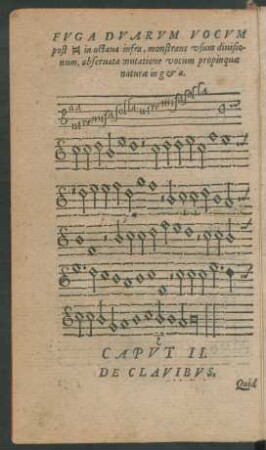 FVGA DVARVM VOCVM
post in octaua infra, monstrans vsum diuisio-
num, obseruata mutatione vocum propinquæ
naturæ in g & a.
ut re mi fa sol la ut re mi fa sol la
CAPVT II.
DE CLAVIBVS.
Quid